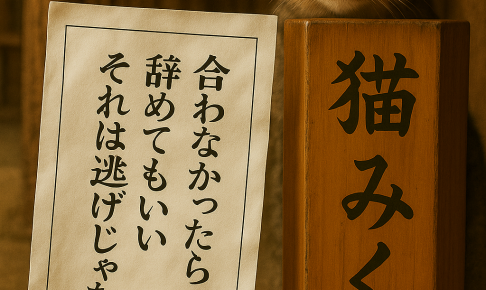 合わなかったら
辞めてもいい
それは逃げじゃ
猫みく